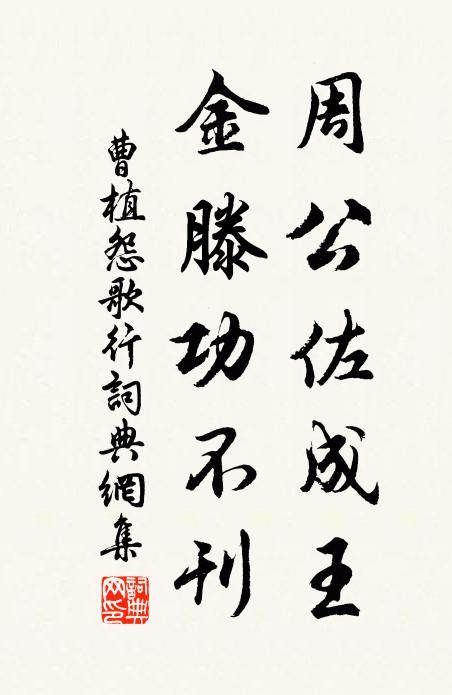 周公佐成王
金滕功不刊
曹植怨歌行詞典網集
詞典網印